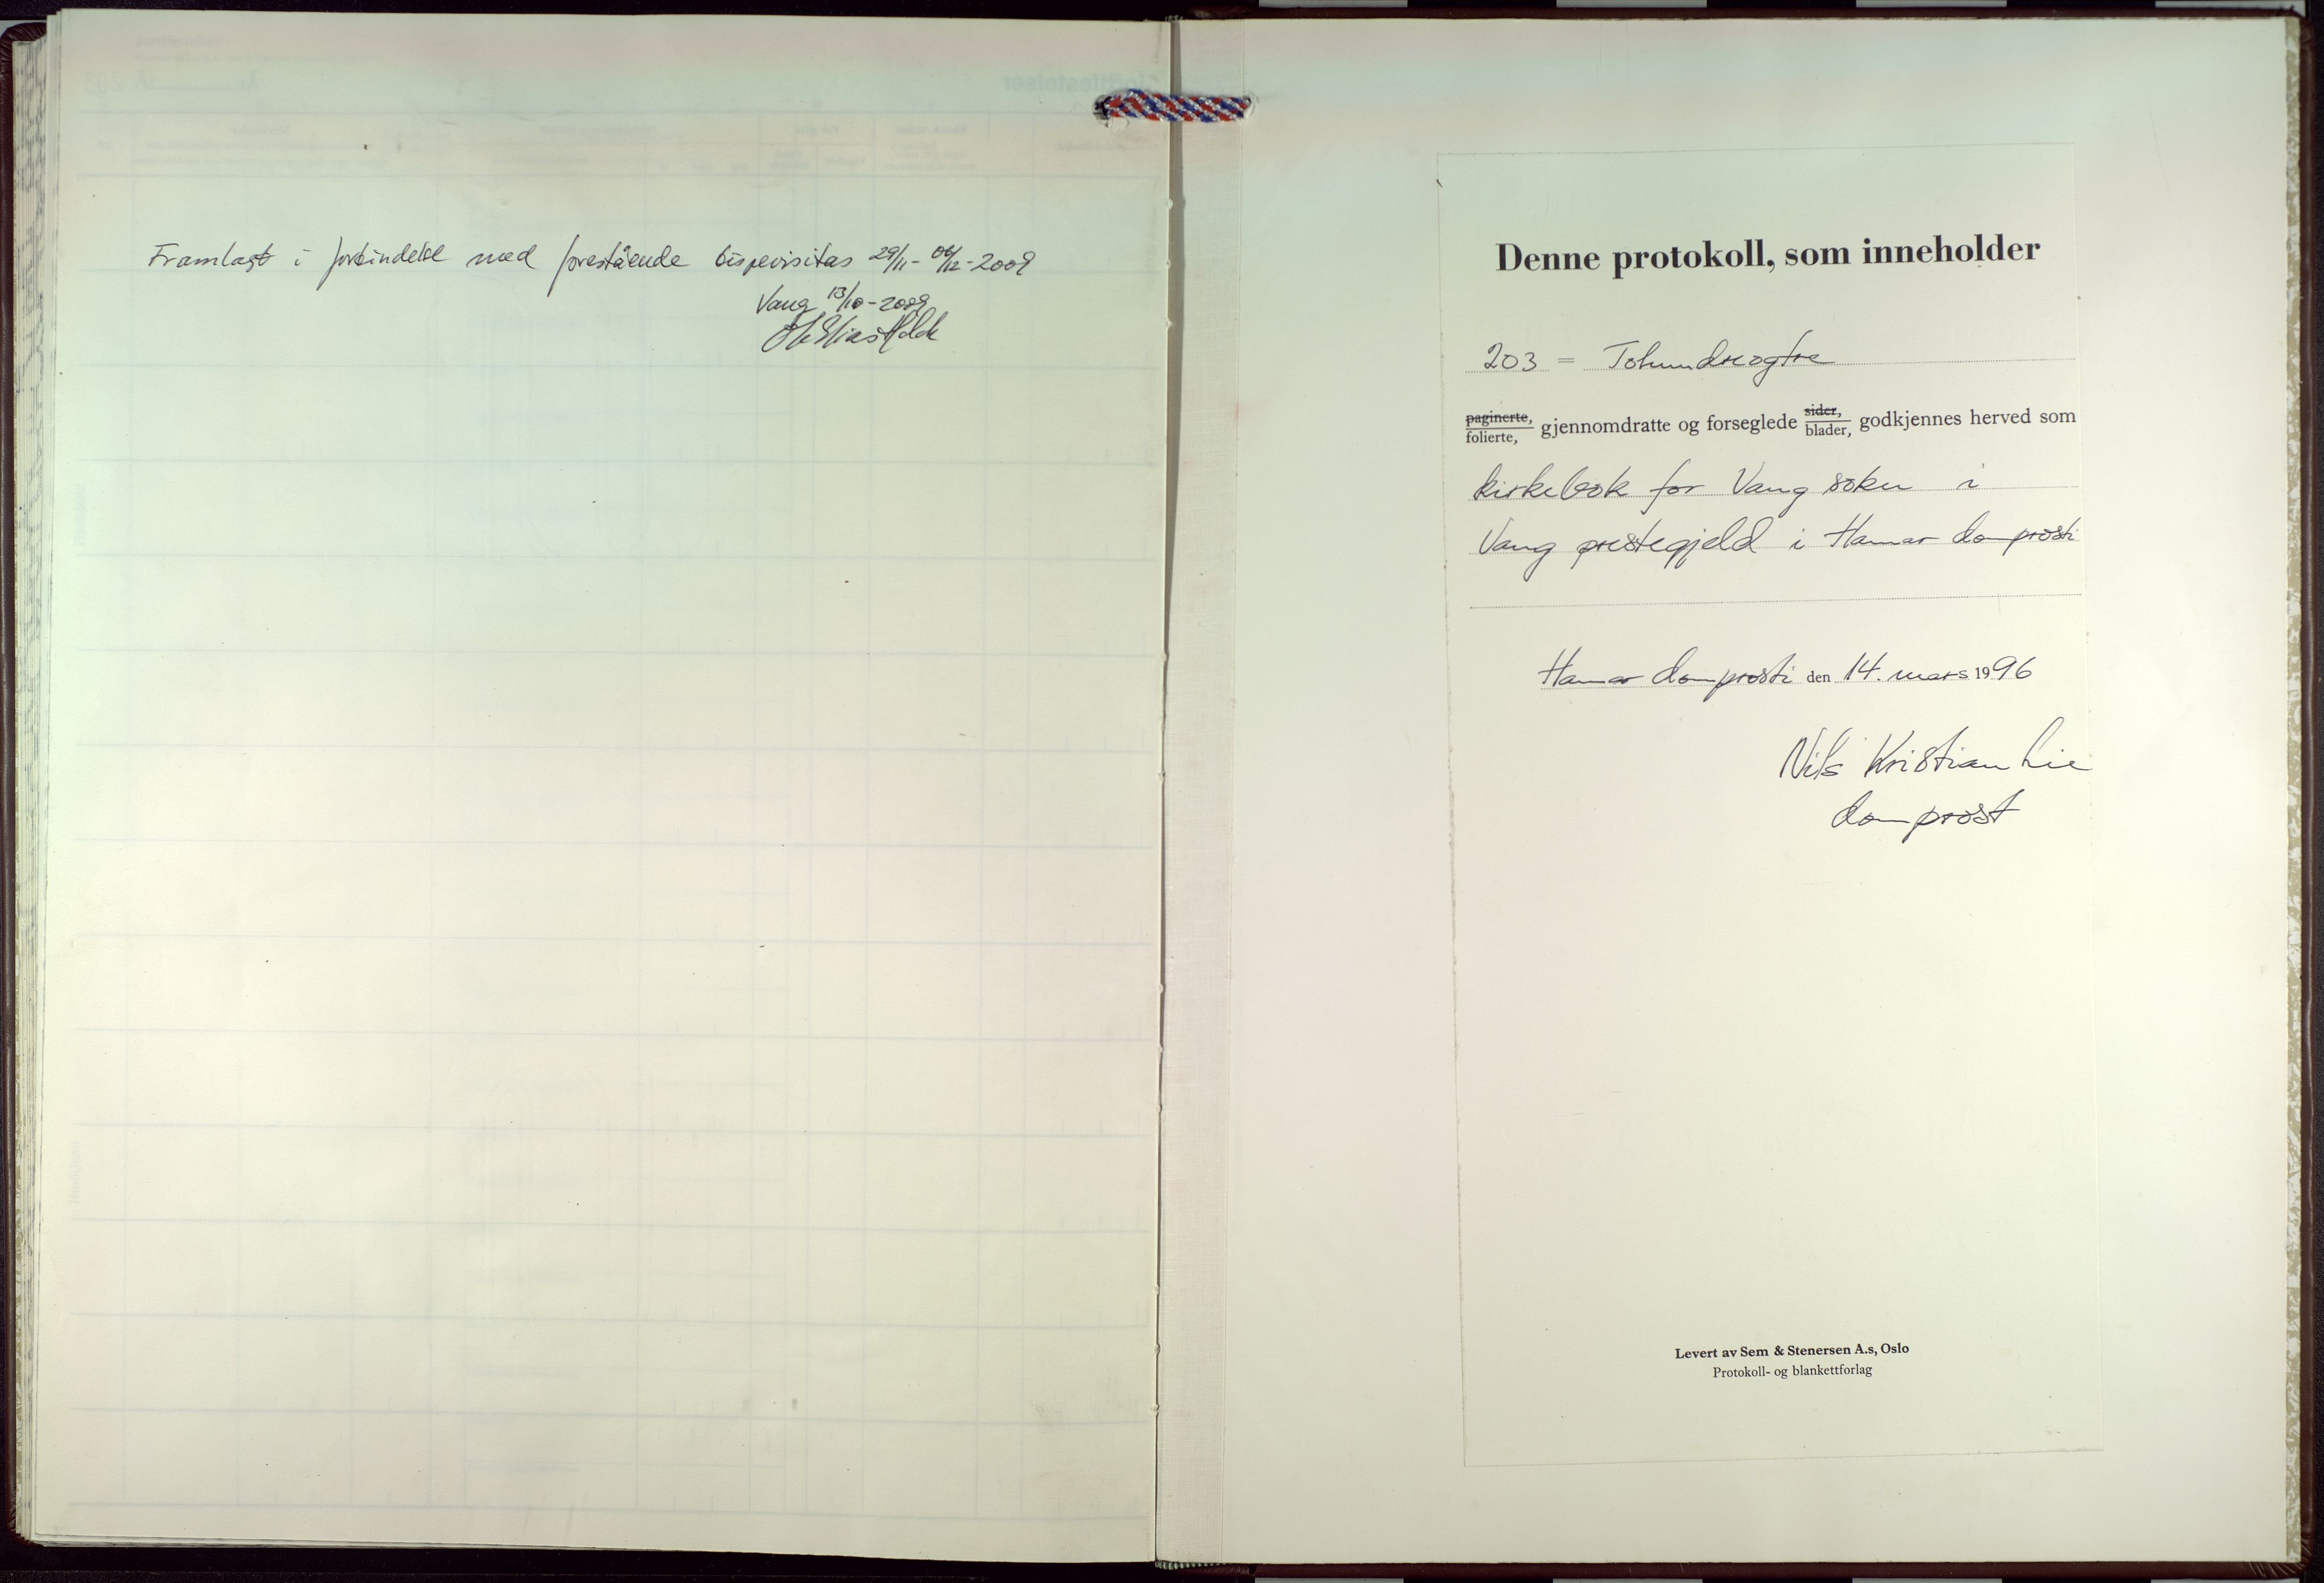 Framlagt i forbindelse med forestående bispevisitas 29/11 - 06/12 - 2009
Vang 13/10 - 2009
Denne protokoll, som inneholder
203 = Tohundreogtre
paginerte, folierte, gjennomdratte og forseglede sider, blader, godkjennes herved som
kirkebok for Vang sokn i
Vang prestegjeld i Hamar domprosti
Hamar domprosti den 14. mars 1996
Nils Kristian Lie
domprost
Levert av Sem & Stenersen A.s, Oslo
Protokoll- og blankettforlag